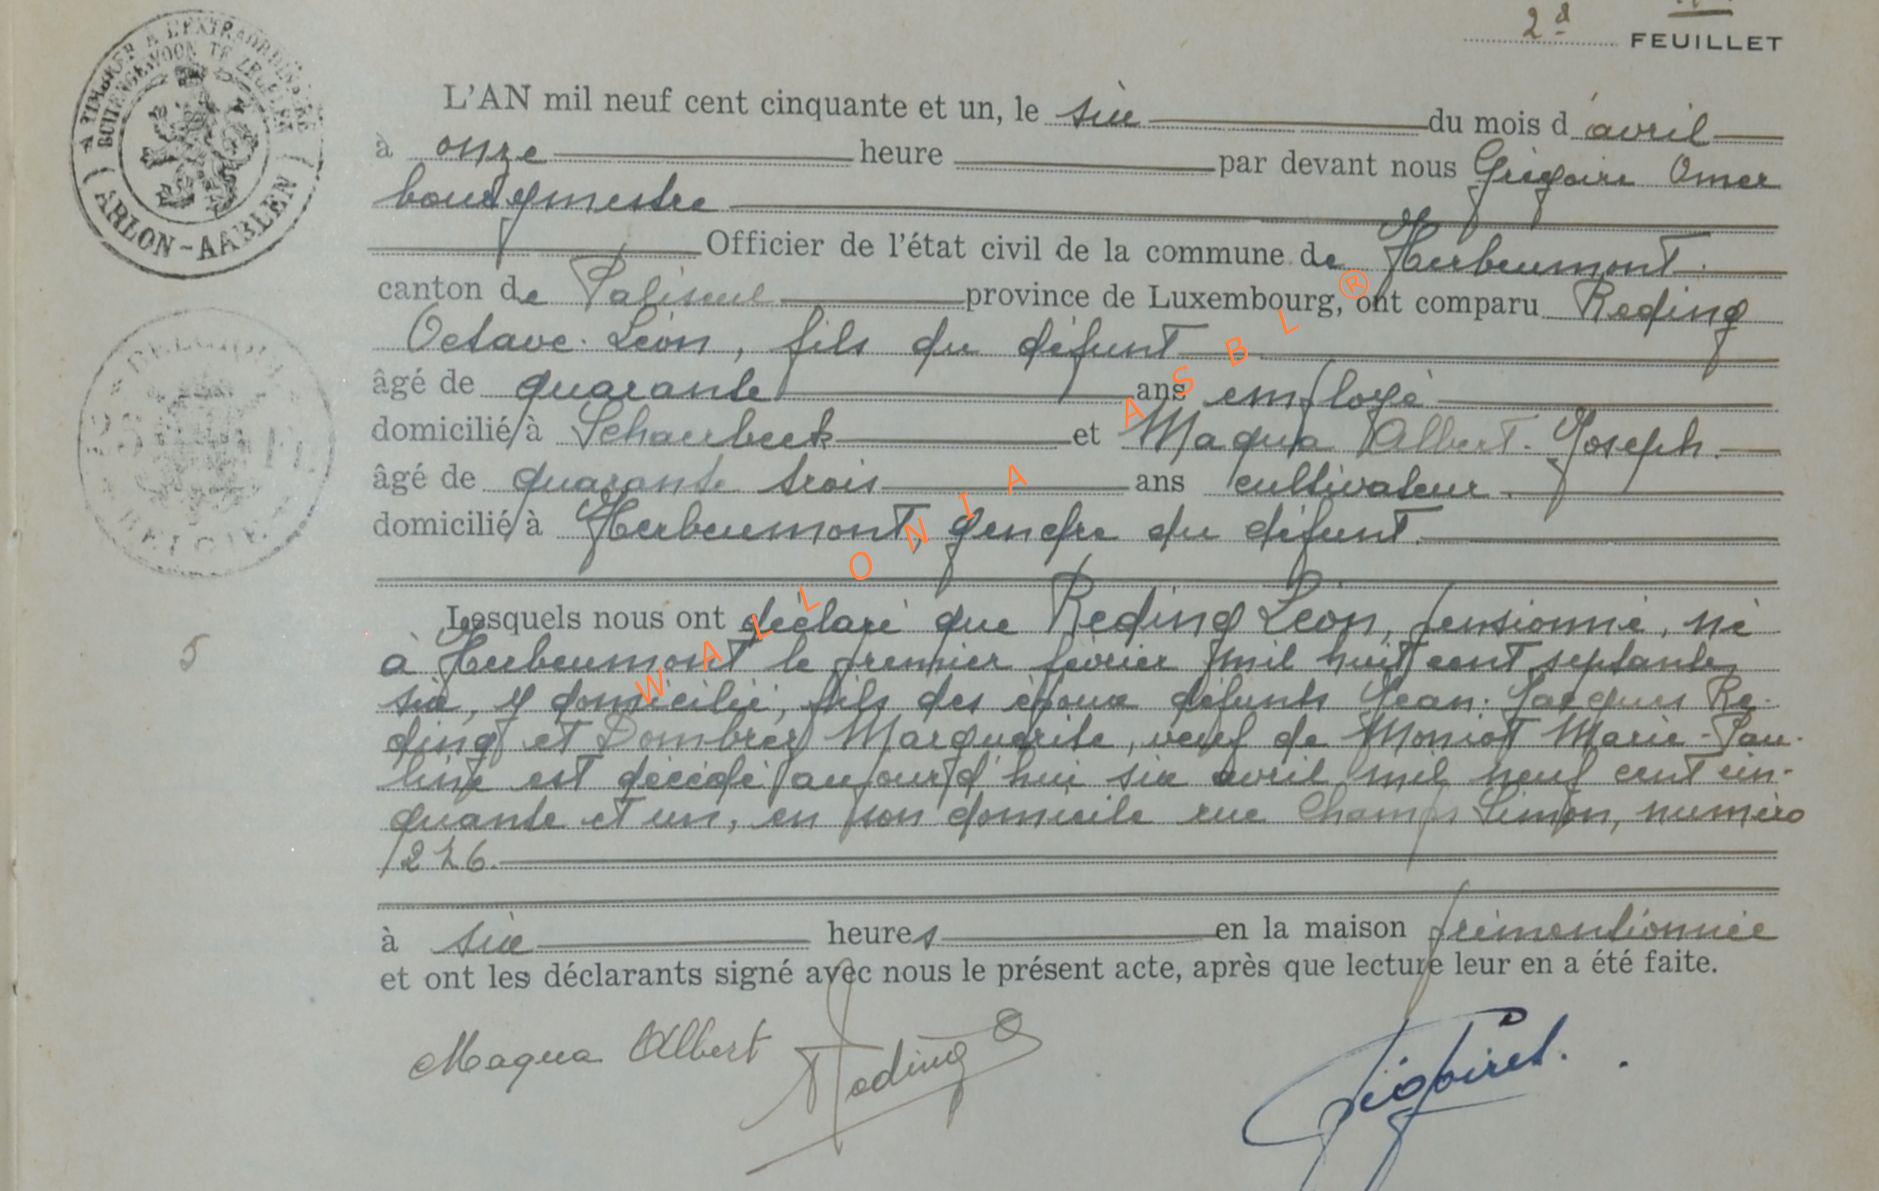 2d FEUILLET
A TIMBRER A L'EXTRAORDINAIRE
BUITENGEWOON TE ZEGELEN
(ARLON-AARLEN)
L'AN mil neuf cent cinquante et un, le six du mois d'avril
à onze heure par devant nous Grégoire Omer
bourgmestre
Officier de l'état civil de la commune de Herbeumont.
canton de Paliseul province de Luxembourg, ont comparu Reding
Octave-Léon, fils du défunt
âgé de quarante ans employé
domicilié à Schaerbeek et Maqua Albert-Joseph.
âgé de quarante trois ans cultivateur.
domicilié à Herbeumont, gendre du défunt.
BELGIQUE
BELGIE
Lesquels nous ont déclaré que Reding Léon, pensionné, né
5
à Herbeumont le premier février mil huit cent septante
six, y domicilié, fils des époux défunts Jean-Jacques Re-
ding et Dombrer Marguerite, veuf de Moniot Marie-Pau-
line est décédé aujourd'hui six avril mil neuf cent cin-
quante et un, en son domicile rue Champs Simon, numéro
276.
à six heures en la maison prémentionnée
et ont les déclarants signé avec nous le présent acte, après que lecture leur en a été faite.
Maqua Albert Reding O
WALLONIA ASBL ®